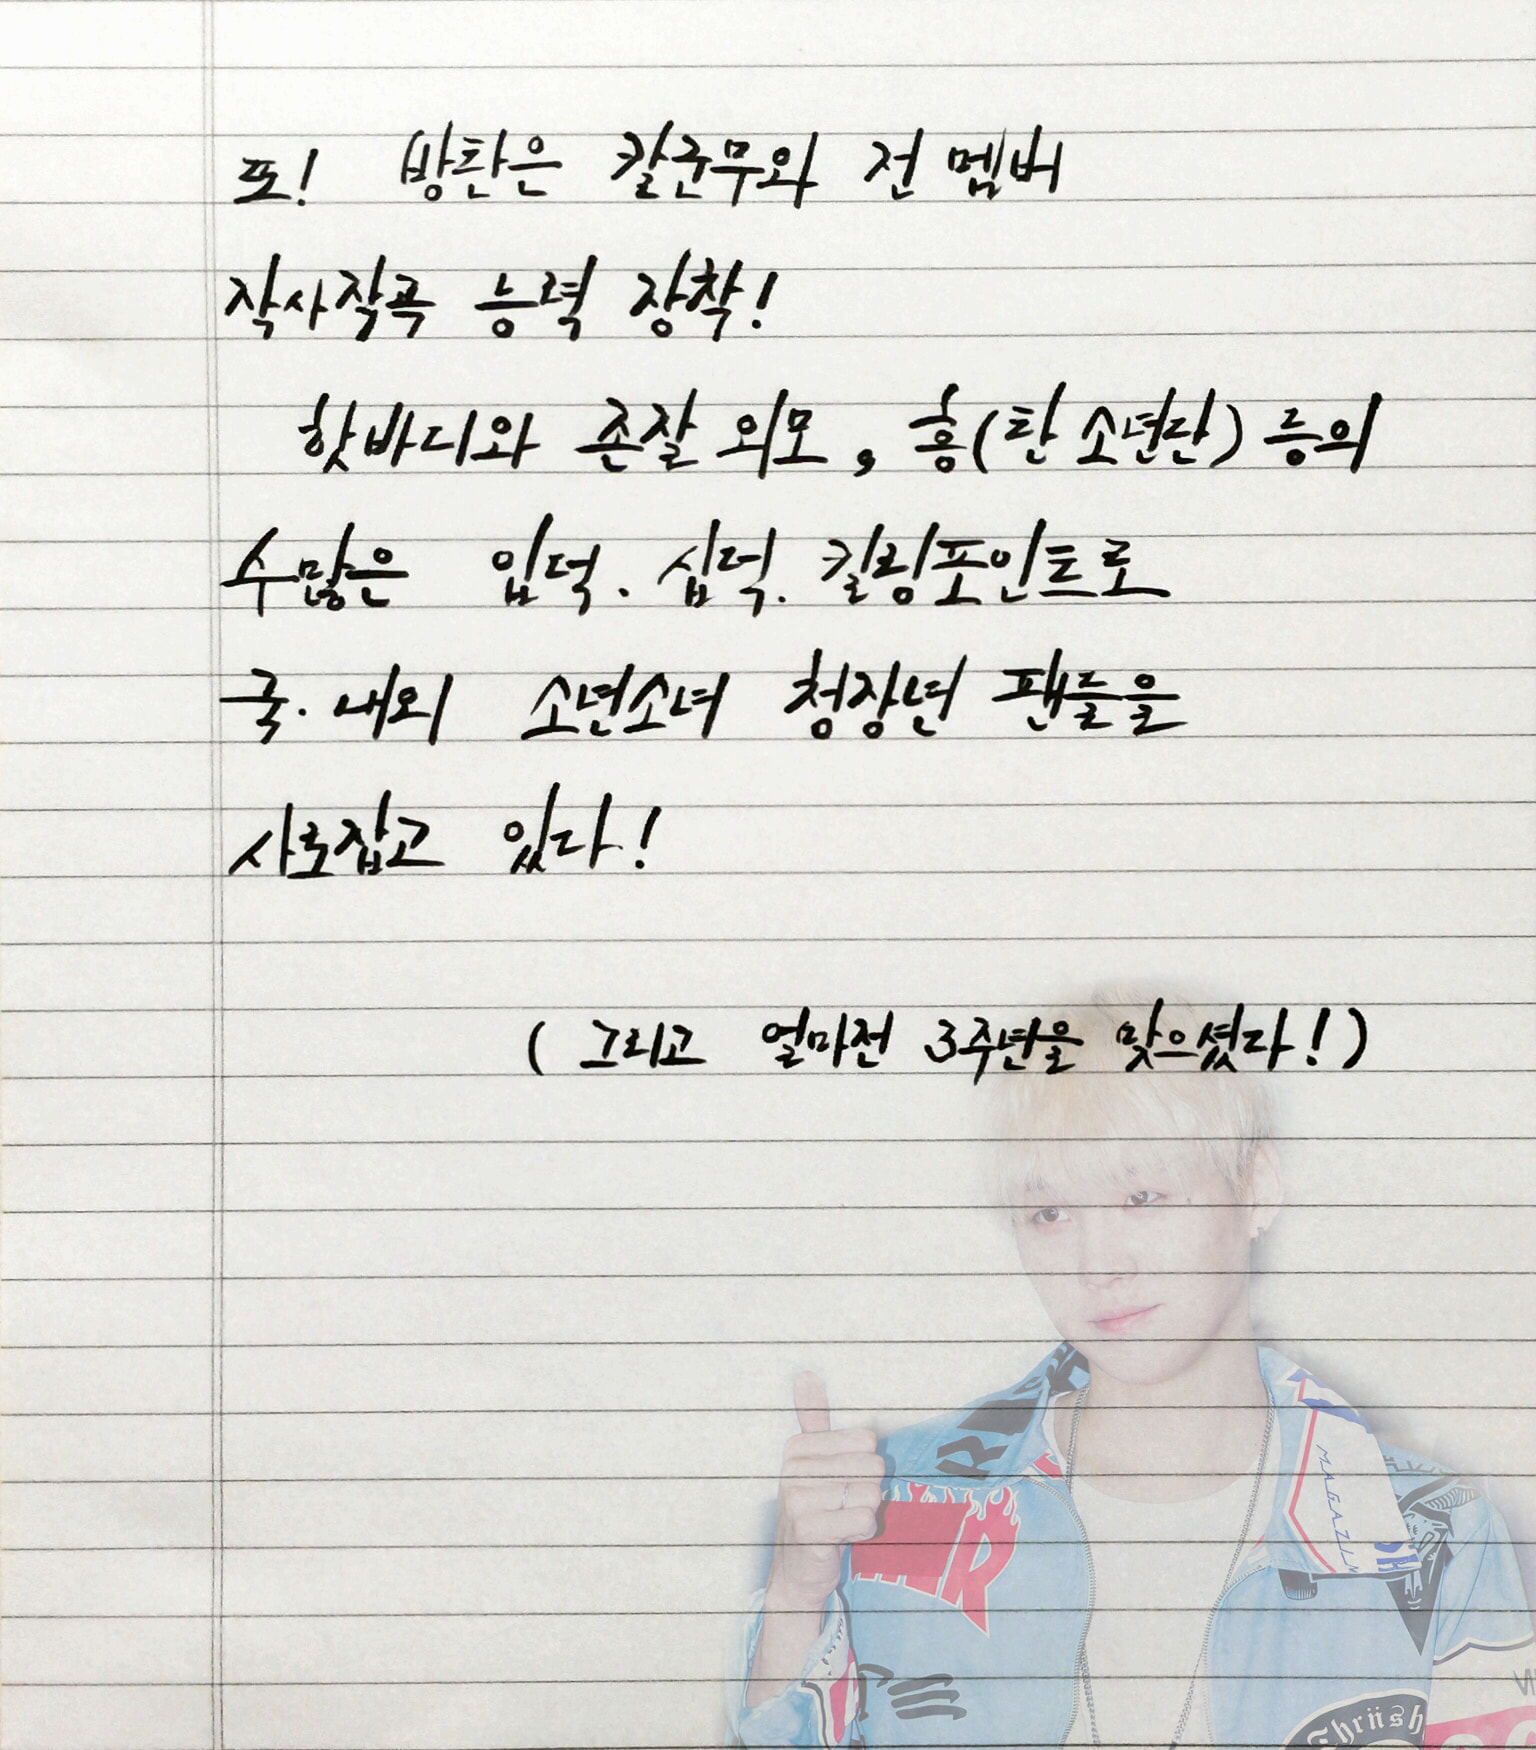 또! 방탄은 칼군무와 전 멤버
작사작곡 능력 장착!
핫바디와 존잘 외모, 흥(탄 소년단) 등의
수많은 입덕. 십덕. 킬링포인트로
국. 내외 소년소녀 청장년 팬들을
사로잡고 있다!
(그리고 얼마전 3주년을 맞으셨다!)
MAGAZIN
Thrüsh